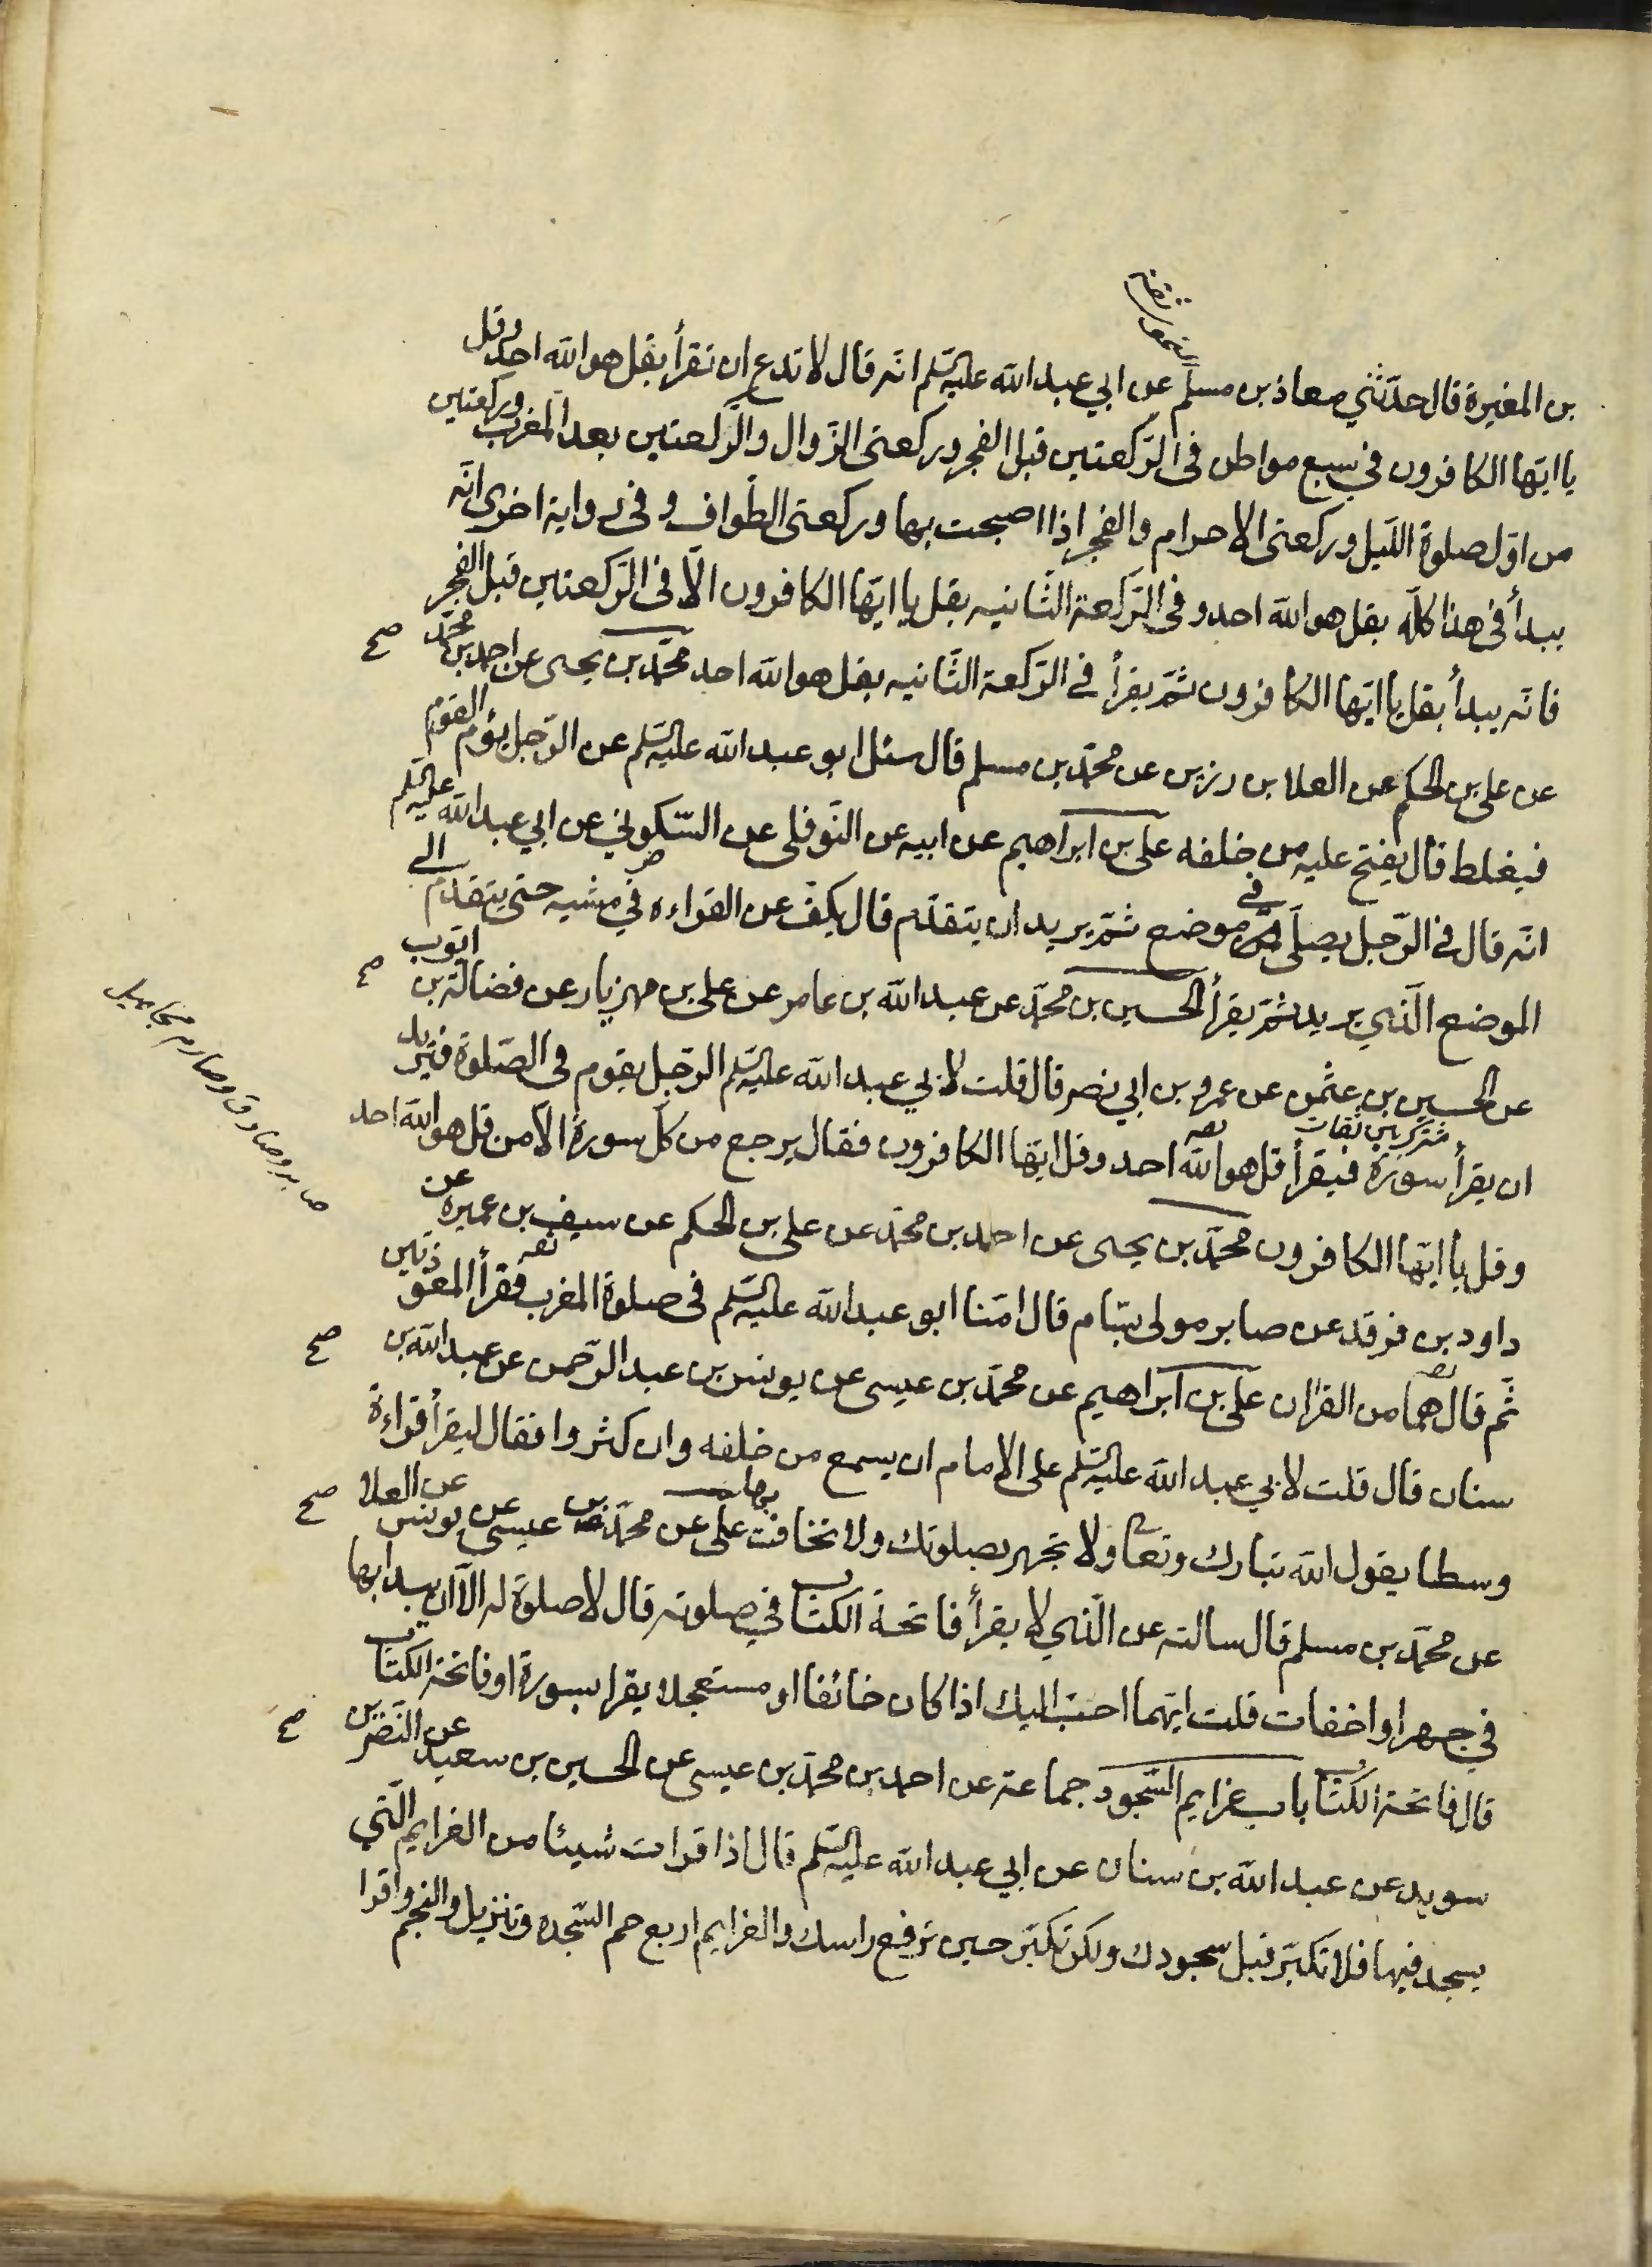 بن المغيرة قال حدّثني معاذ بن مسلم عن ابي عبد الله عليه السّلم انّه قال لا تدع ان تقرأ بقل هو الله احد وقل
يا ايّها الكافرون في سبع مواطن في الرّكعتين قبل الفجر وركعتى الزّوال والرّكعتين بعد المغرب وركعتين
من اوّل صلوة اللّيل وركعتى الاحرام والفجر اذا اصبحت بها وركعتى الطّواف وفي رواية اخرى انّه
يبدأ في هذا كلّه بقل هو الله احد وفي الرّكعة الثّانيه بقل يا ايّها الكافرون الّا في الرّكعتين قبل الفجر
فانّه يبدأ بقل يا ايّها الكافرون ثمّ يقرأ في الرّكعة الثّانيه بقل هو الله احد محمّد بن يحيى عن احمد بن محمّد
صح
عن على بن الحكم عن العلا بن رزين عن محمّد بن مسلم قال سئل ابو عبد الله عليه السّلم عن الرّجل يؤم القوم
فيغلط قال يفتح عليه من خلفه على بن ابراهيم عن ابيه عن النّوفلى عن السّكوني عن ابي عبد الله عليه السّلم
انّه قال في الرّجل يصلّى في موضع ثمّ يريد ان يتقدّم قال يكفّ عن القراءه في مشيه حتى يتقدّم الى
الموضع الّذي يريد ثمّ يقرأ الحسين بن محمّد عن عبد الله بن عامر عن على بن مهزيار عن فضالة بن ايّوب
صح
عن الحسين بن عثمن عن عمرو بن ابي نصر قال قلت لابي عبد الله عليه السّلم الرّجل يقوم في الصّلوة فيريد
مشترك بين ثقات
ان يقرأ سورة فيقرأ قل هو الله احد وقل ايّها الكافرون فقال يرجع من كلّ سورة الّا من قل هو الله احد
وقل يا ايّها الكافرون محمّد بن يحيى عن احمد بن محمّد عن على بن الحكم عن سيف بن عميرة عن
داود بن فرقد عن صابر مولى بسّام قال امّنا ابو عبد الله عليه السّلم في صلوة المغرب فقرأ المعوّذتين
صابر وصادق وصارم مجاهيل
ثّم قال هما من القران على بن ابراهيم عن محمّد بن عيسى عن يونس بن عبد الرّحمن عن عبد الله بن
صح
سنان قال قلت لابي عبد الله عليه السّلم على الامام ان يسمع من خلفه وان كثروا فقال ليقرأ قراءة
وسطا يقول الله تبارك وتعا ولا تجهر بصلوتك ولا تخافت بها على عن محمّد بن عيسى عن يونس عن العلا
صح
عن محمّد بن مسلم قال سالته عن الّذي لا يقرأ فاتحة الكتاب في صلوته قال لا صلوة له الّا ان يبدا بها
في جهر او اخفات قلت ايّهما احبّ اليك اذا كان خائفا او مستعجلا يقرا بسورة او فاتحة الكتاب
قال فاتحة الكتاب باب عزايم السّجود جماعة عن احمد بن محمّد بن عيسى عن الحسين بن سعيد عن النّضر بن
صح
سويد عن عبد الله بن سنان عن ابي عبد الله عليه السّلم قال اذا قرات شيئا من الغرايم الّتي
يسجد فيها فلا تكبّر قبل سجودك ولكن تكبّر حين ترفع راسك والغرايم اربع حم السّجده وتنزيل والنجم واقرا